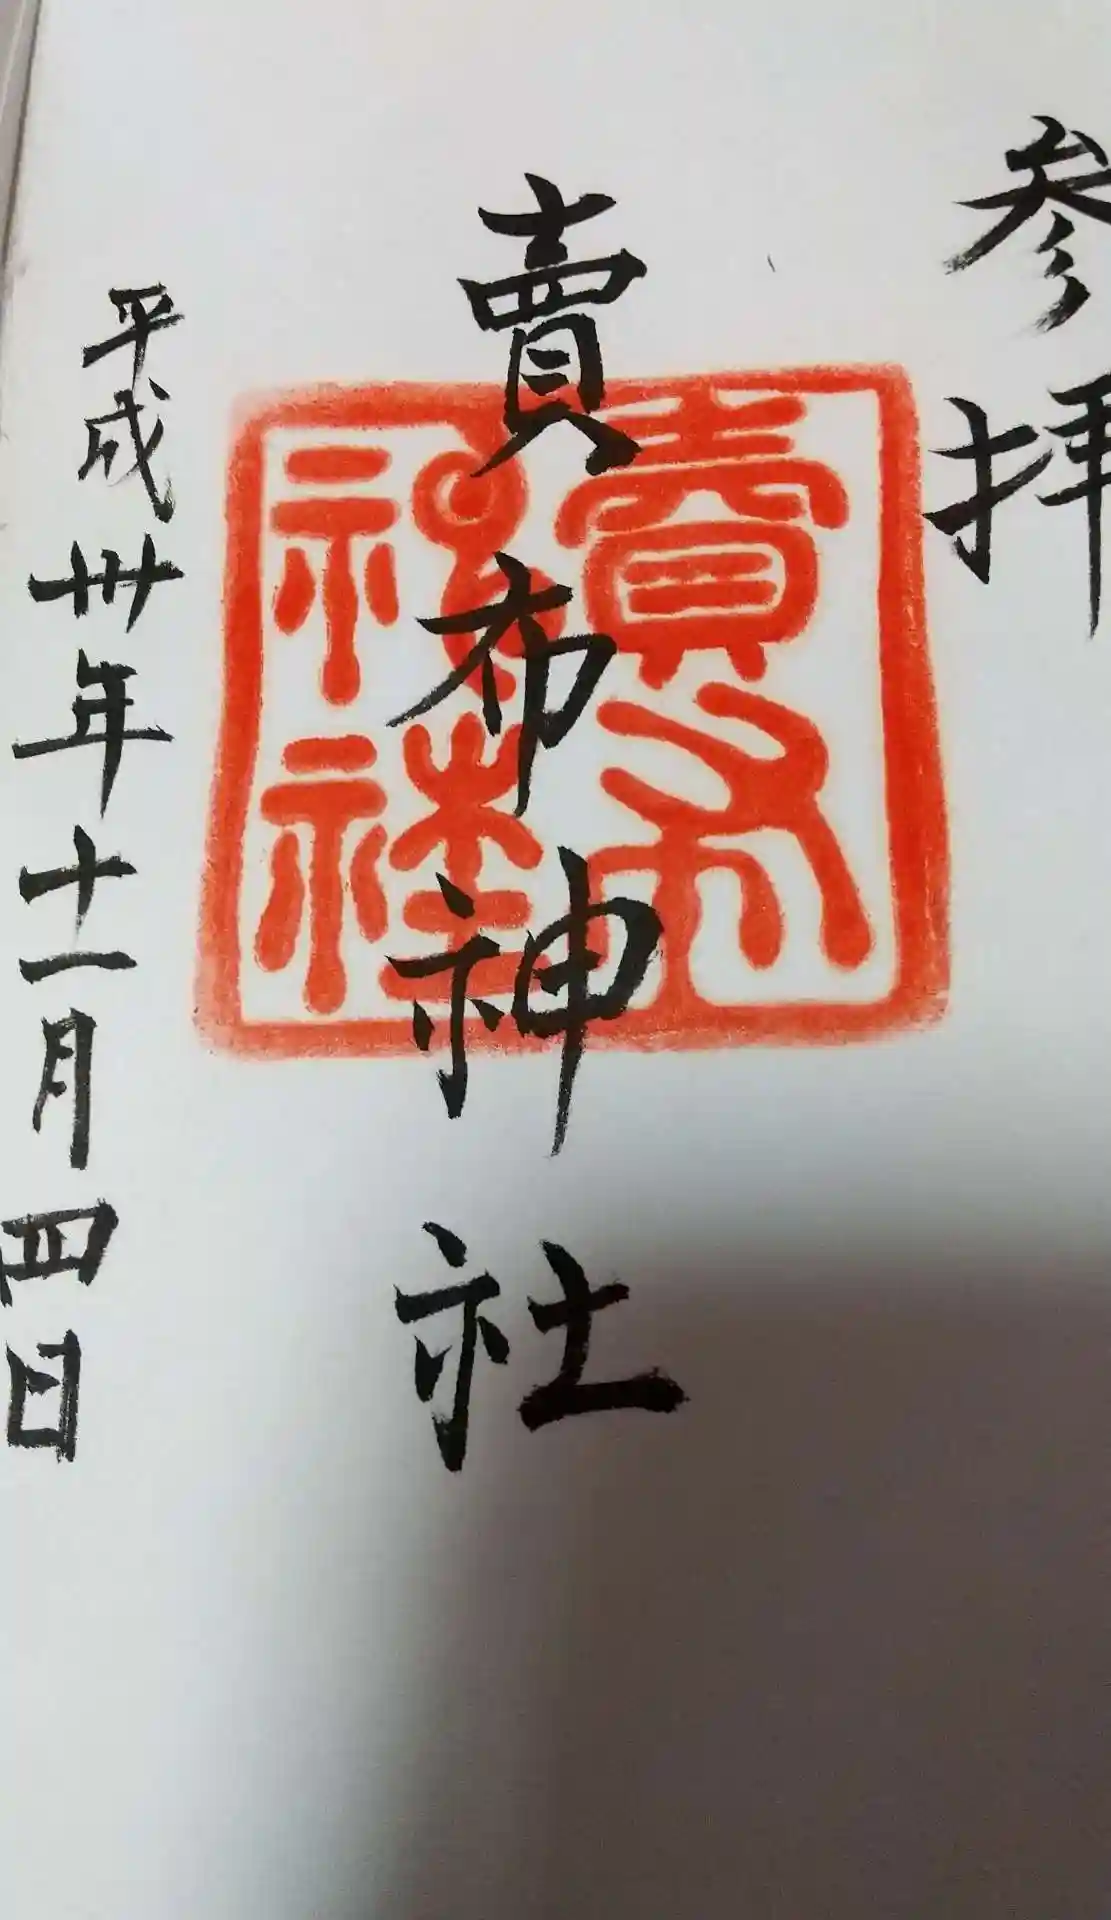 参拝
賣布神社
賣布
神社
平成卅年十一月四日